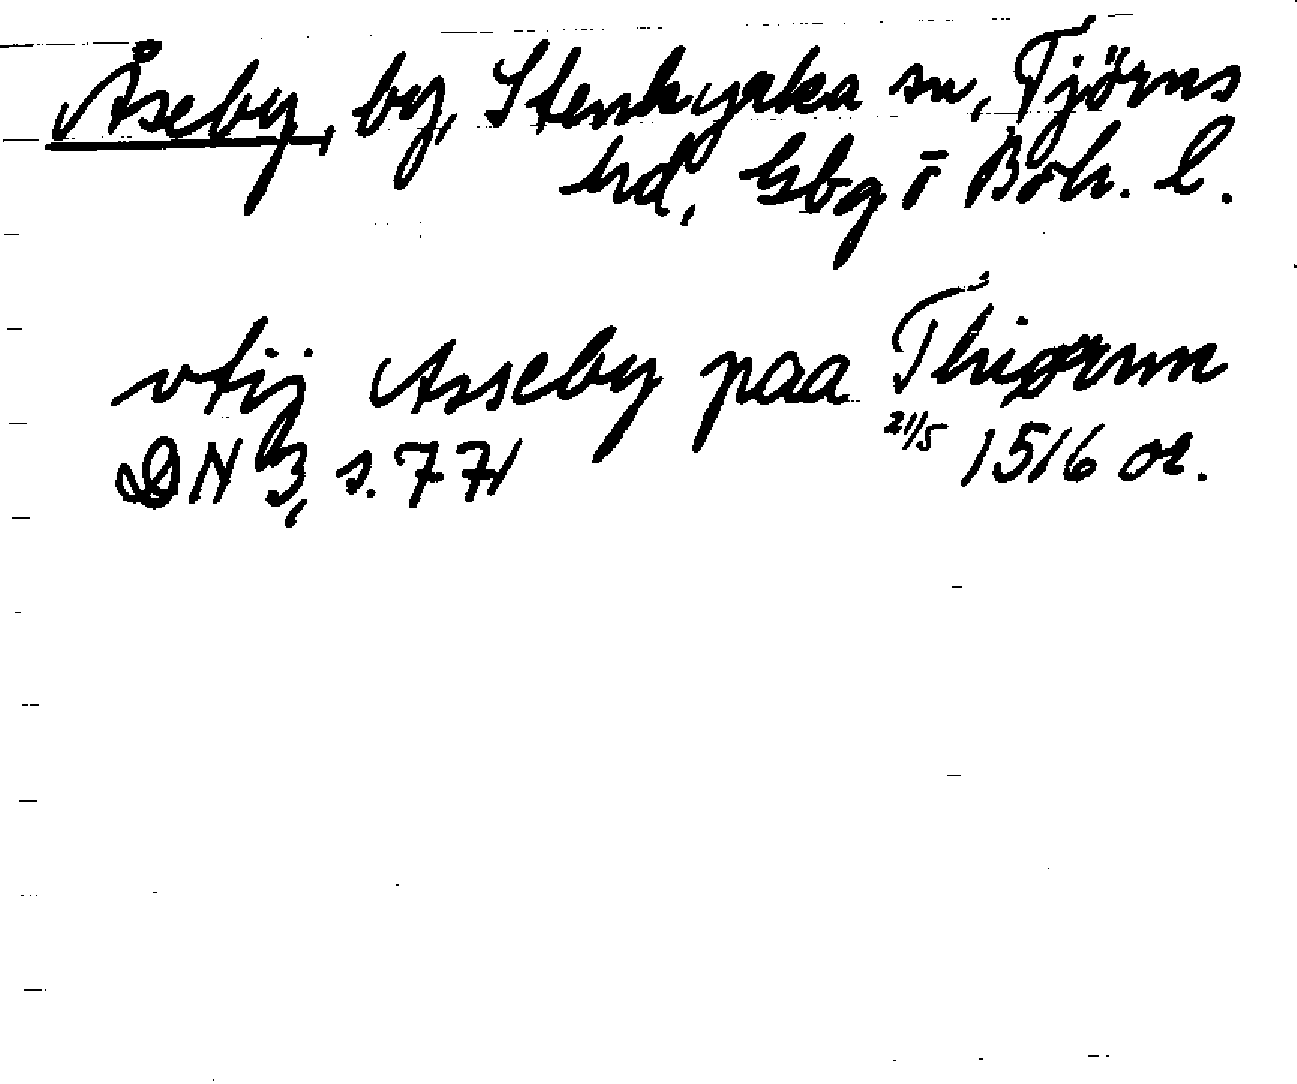 Åseby, by, Stenkyrka sn, Tjörns
hd, Gbg o Boh. l.
vtij Asseby paa Thigørnn
21/5 1516 or.
DN 3, s. 771